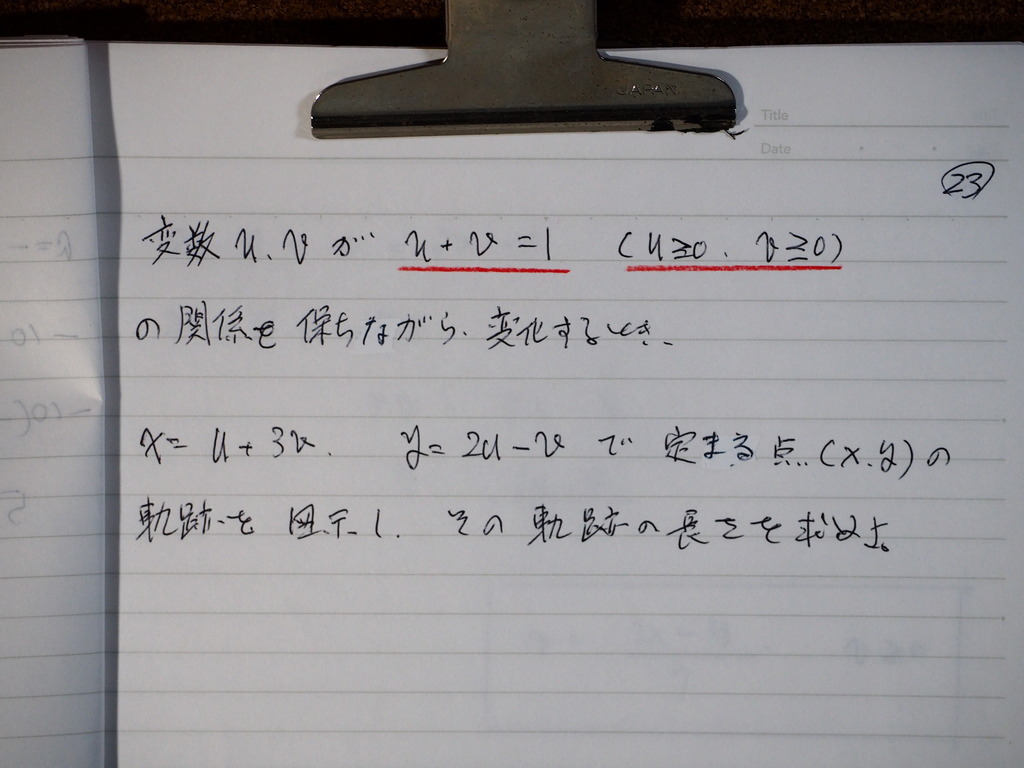 JAPAN
Title
Date
23
変数 u、v が u + v = 1 (u≧0、v≧0)
の関係を保ちながら、変化するとき、
x = u + 3v、 y = 2u - v で定まる点 (x、y) の
軌跡を図示し、その軌跡の長さを求めよ。